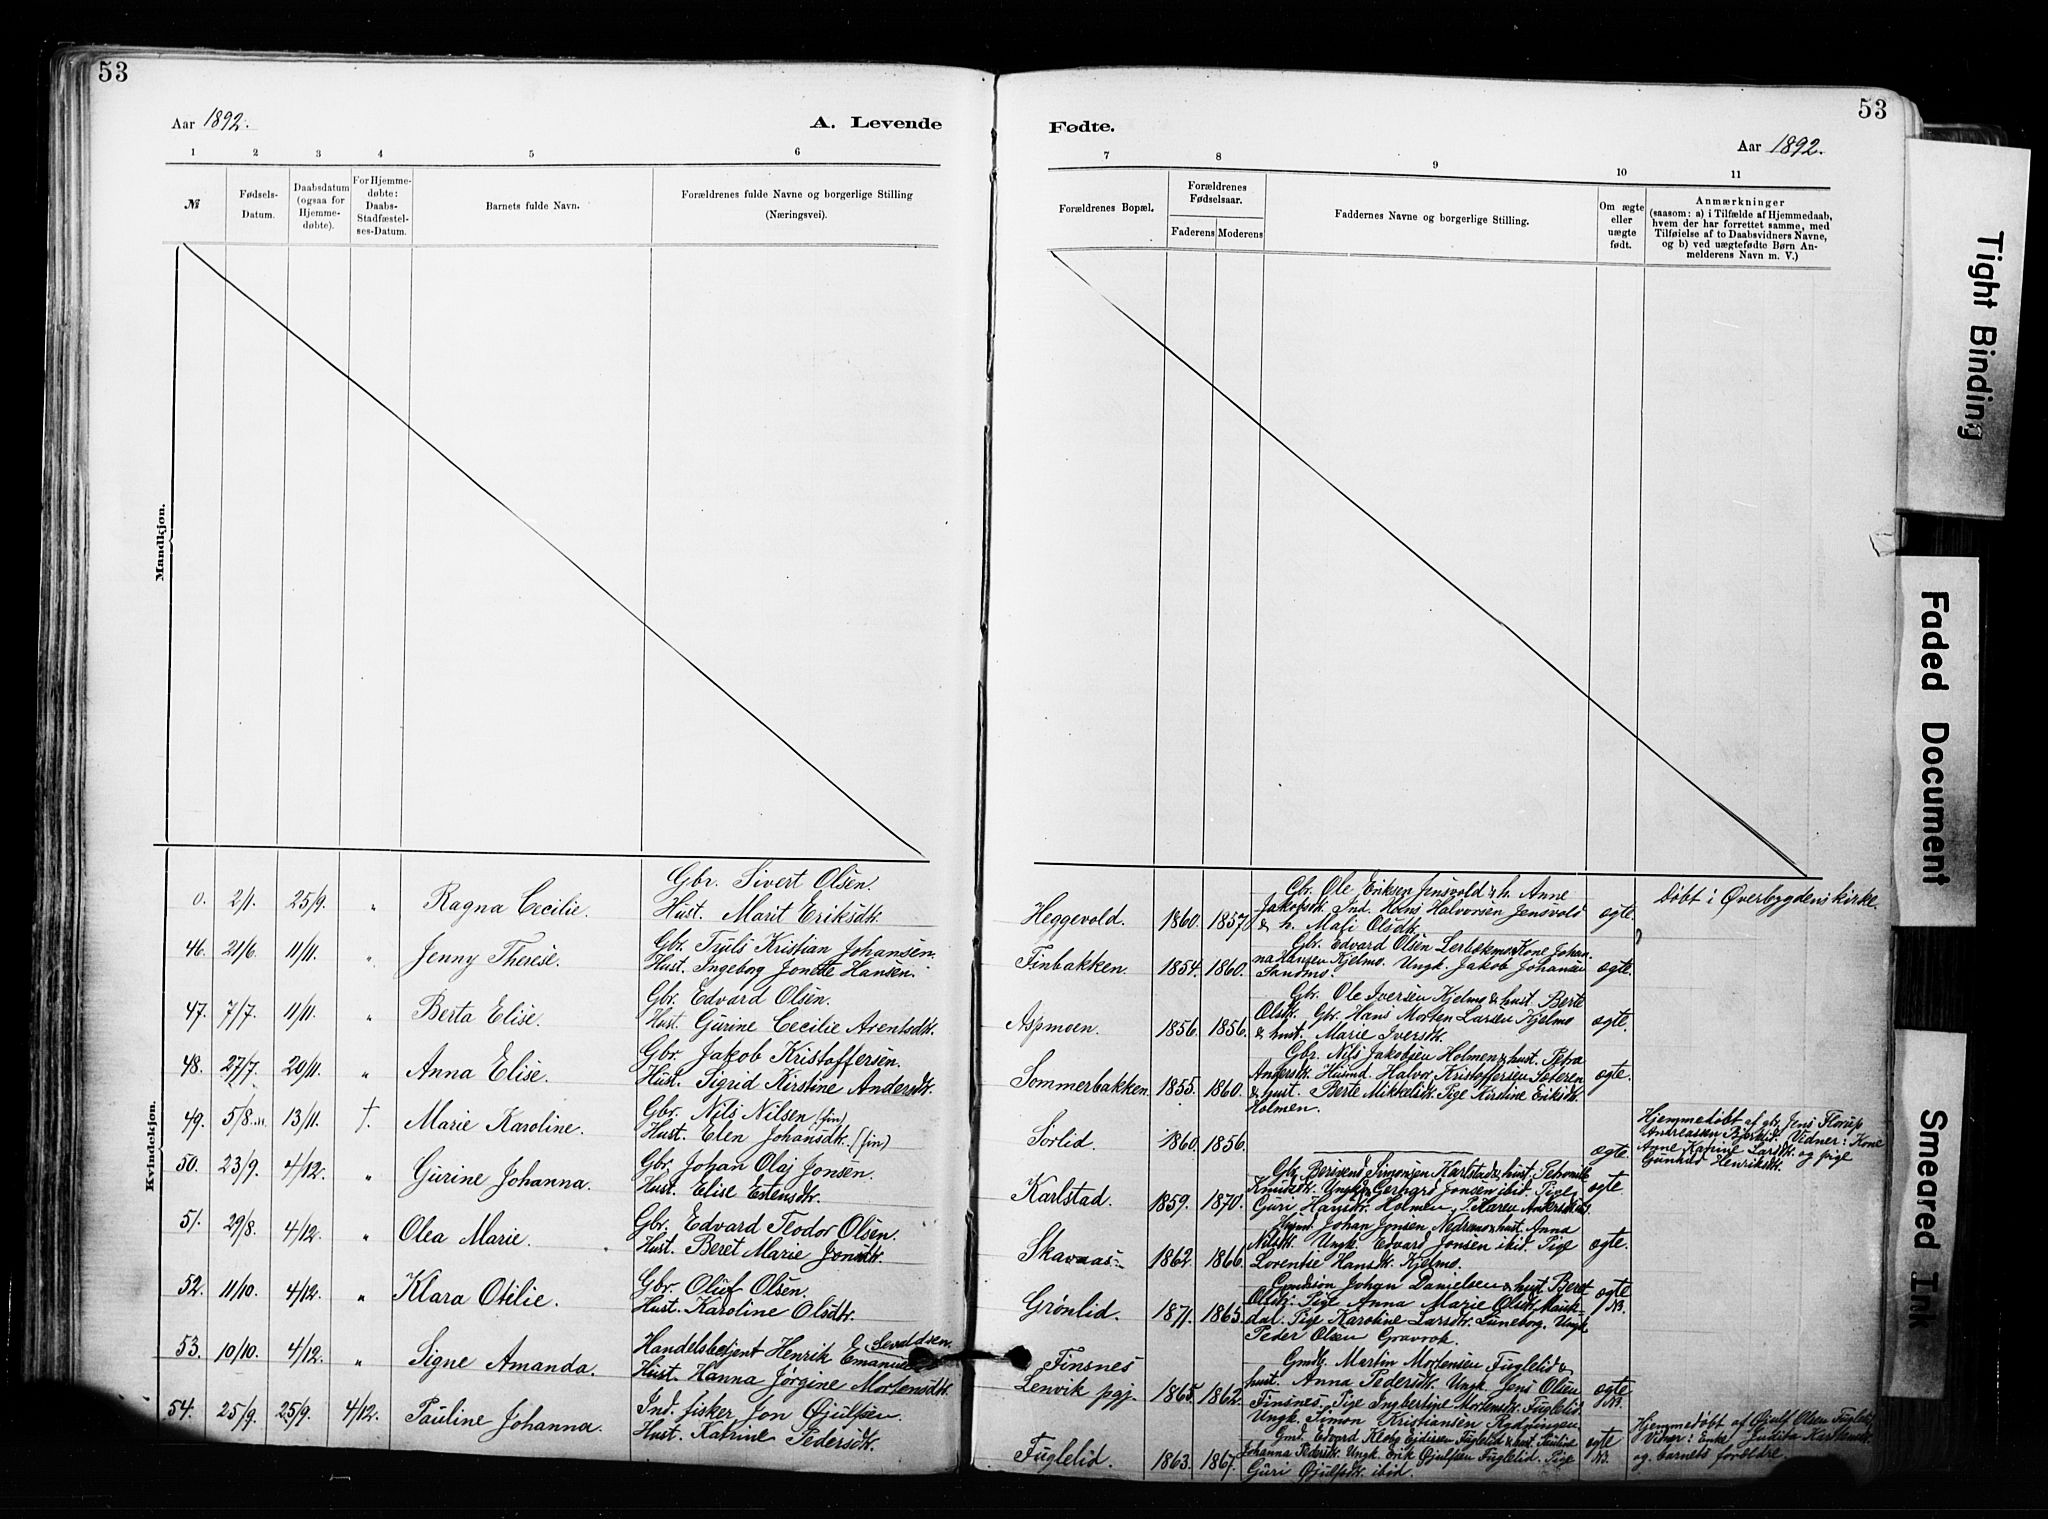 53
Aar 1892.
A. Levende
1 2 3 4 5 6
№
Fødsels-
Datum.
Daabsdatum
(ogsaa for
Hjemme-
døbte).
For Hjemme-
døbte:
Daabs-
Stadfæstel-
ses-Datum.
Barnets fulde Navn.
Forældrenes fulde Navne og borgerlige Stilling
(Næringsvei).
Mandkjøn.
Kvindekjøn.
0. 2/1. 25/9. " Ragna Cecilie.
Gbr. Sivert Olsen.
Hust. Marit Eriksdtr.
46. 21/6. 11/11. " Jenny Therese.
Gbr. Truls Kristian Johansen.
Hust. Ingeborg Jonette Hansen.
47. 7/7. 11/11. " Berta Elise.
Gbr. Edvard Olsen.
Hust. Gurine Cecilie Arentsdtr.
48. 27/7. 20/11. " Anna Elise.
Gbr. Jakob Kristoffersen.
Hust. Sigrid Kirstine Andersdtr.
49. 5/8. 13/11. †. Marie Karoline.
Gbr. Nils Nilsen (fin)
Hust. Elen Johansdtr. (fin)
50. 23/9. 4/12. " Gurine Johanna.
Gbr. Johan Olaj Jonsen.
Hust. Elise Estensdtr.
51. 29/8. 4/12. " Olea Marie.
Gbr. Edvard Teodor Olsen.
Hust. Beret Marie Jonsdtr.
52. 11/10. 4/12. " Klara Otilie.
Gbr. Oluf Olsen.
Hust. Karoline Olsdtr.
53. 10/10. 4/12. " Signe Amanda.
Handelsbetjent Henrik Emanuel
Hust. Hanna Jørgine Mortensdtr.
54. 25/9. 25/9. 4/12. Pauline Johanna.
Ind. fisker Jon Øjulfsen.
Hust. Katrine Pedersdtr.
Fødte.
53
Aar 1892.
7 8 9 10 11
Forældrenes Bopæl.
Forældrenes
Fødselsaar.
Faderens Moderens
Faddernes Navne og borgerlige Stilling.
Om ægte
eller
uægte
født.
Anmærkninger
(saasom: a) i Tilfælde af Hjemmedaab,
hvem der har forrettet samme, med
Tilføielse af to Daabsvidners Navne,
og b) ved uægtefødte Børn An-
melderens Navn m. V.)
Heggevold. 1860. 1857.
Gbr. Ole Eriksen Jensvold & h. Anne
Jakobsdtr. Ind. Hans Halvorsen Jensvold
& h. Mafi Olsdtr.
ægte.
Døbt i Øverbygdens kirke.
Finbakken. 1854. 1860.
Gbr. Edvard Olsen Kone Johan-
na Hansen Kjelmo. Ungk. Jakob Johansen
Sandmo.
ægte.
Aspmoen. 1856. 1856.
Gbr. Ole Iversen Kjelmo & hust. Berte
Olsdtr. Gbr. Hans Morten Larsen Kjelmo
& hust. Marie Iversdtr.
ægte.
Sommerbakken. 1855. 1860.
Gbr. Nils Jakobsen Holmen & hust. Petra
Andersdtr. Husmd. Halvor Kristoffersen
& hust. Berte Mikkelsdtr. Pige Kirstine Eriksdtr.
Holmen.
ægte.
Sørlid. 1860. 1856.
ægte.
Hjemmedøbt af gbr. Jens Florup
Andreassen Vidner: Kone
Anne Katrine Larsdtr. og pige
Gunhild Henriksdtr.
Karlstad. 1859. 1870.
Gbr. Bersvend Simonsen Karlstad & hust. Petronille
Knudsdtr. Ungk. Jonsen ibid. Pige
Guri Holmen. P. Karen Andersdtr.
ægte
Skavaas. 1862. 1866.
Johan Jonsen Nedremo & hust. Anna
Nilsdtr. Ungk. Edvard Jonsen ibid. Pige
Lorentse Hansdtr. Kjelmo.
ægte.
Grønlid. 1871. 1865.
Johan Danielsen & hust. Beret
Olsdtr. Pige Anna Marie Olsdtr. Mauk-
dal. Pige Karoline Larsdtr. Luneborg. Ungk.
Peder Olsen Gravrok.
ægte
NB.
Finsnes
Lenvik pgj. 1865. 1862.
Gmd. Martin Mortensen Fuglelid &
hust. Anna Pedersdtr. Ungk. Jens Olsen
Finsnes. Pige Ingbertine Mortensdtr. Fuglelid.
Ungk. Simon Kristiansen
ægte
NB.
Fuglelid. 1863. 1867.
Gmd. Edvard Fuglelid & hust. Pauline
Johanna Pedersdtr. Ungk. Erik Øjulfsen Fuglelid. Pige
Guri Øjulfsdtr. ibid.
ægte
NB.
Hjemmedøbt af Øjulf Olsen Fuglelid.
Vidner: Enke
og barnets forældre.
Tight Binding
Faded Document
Smeared Ink